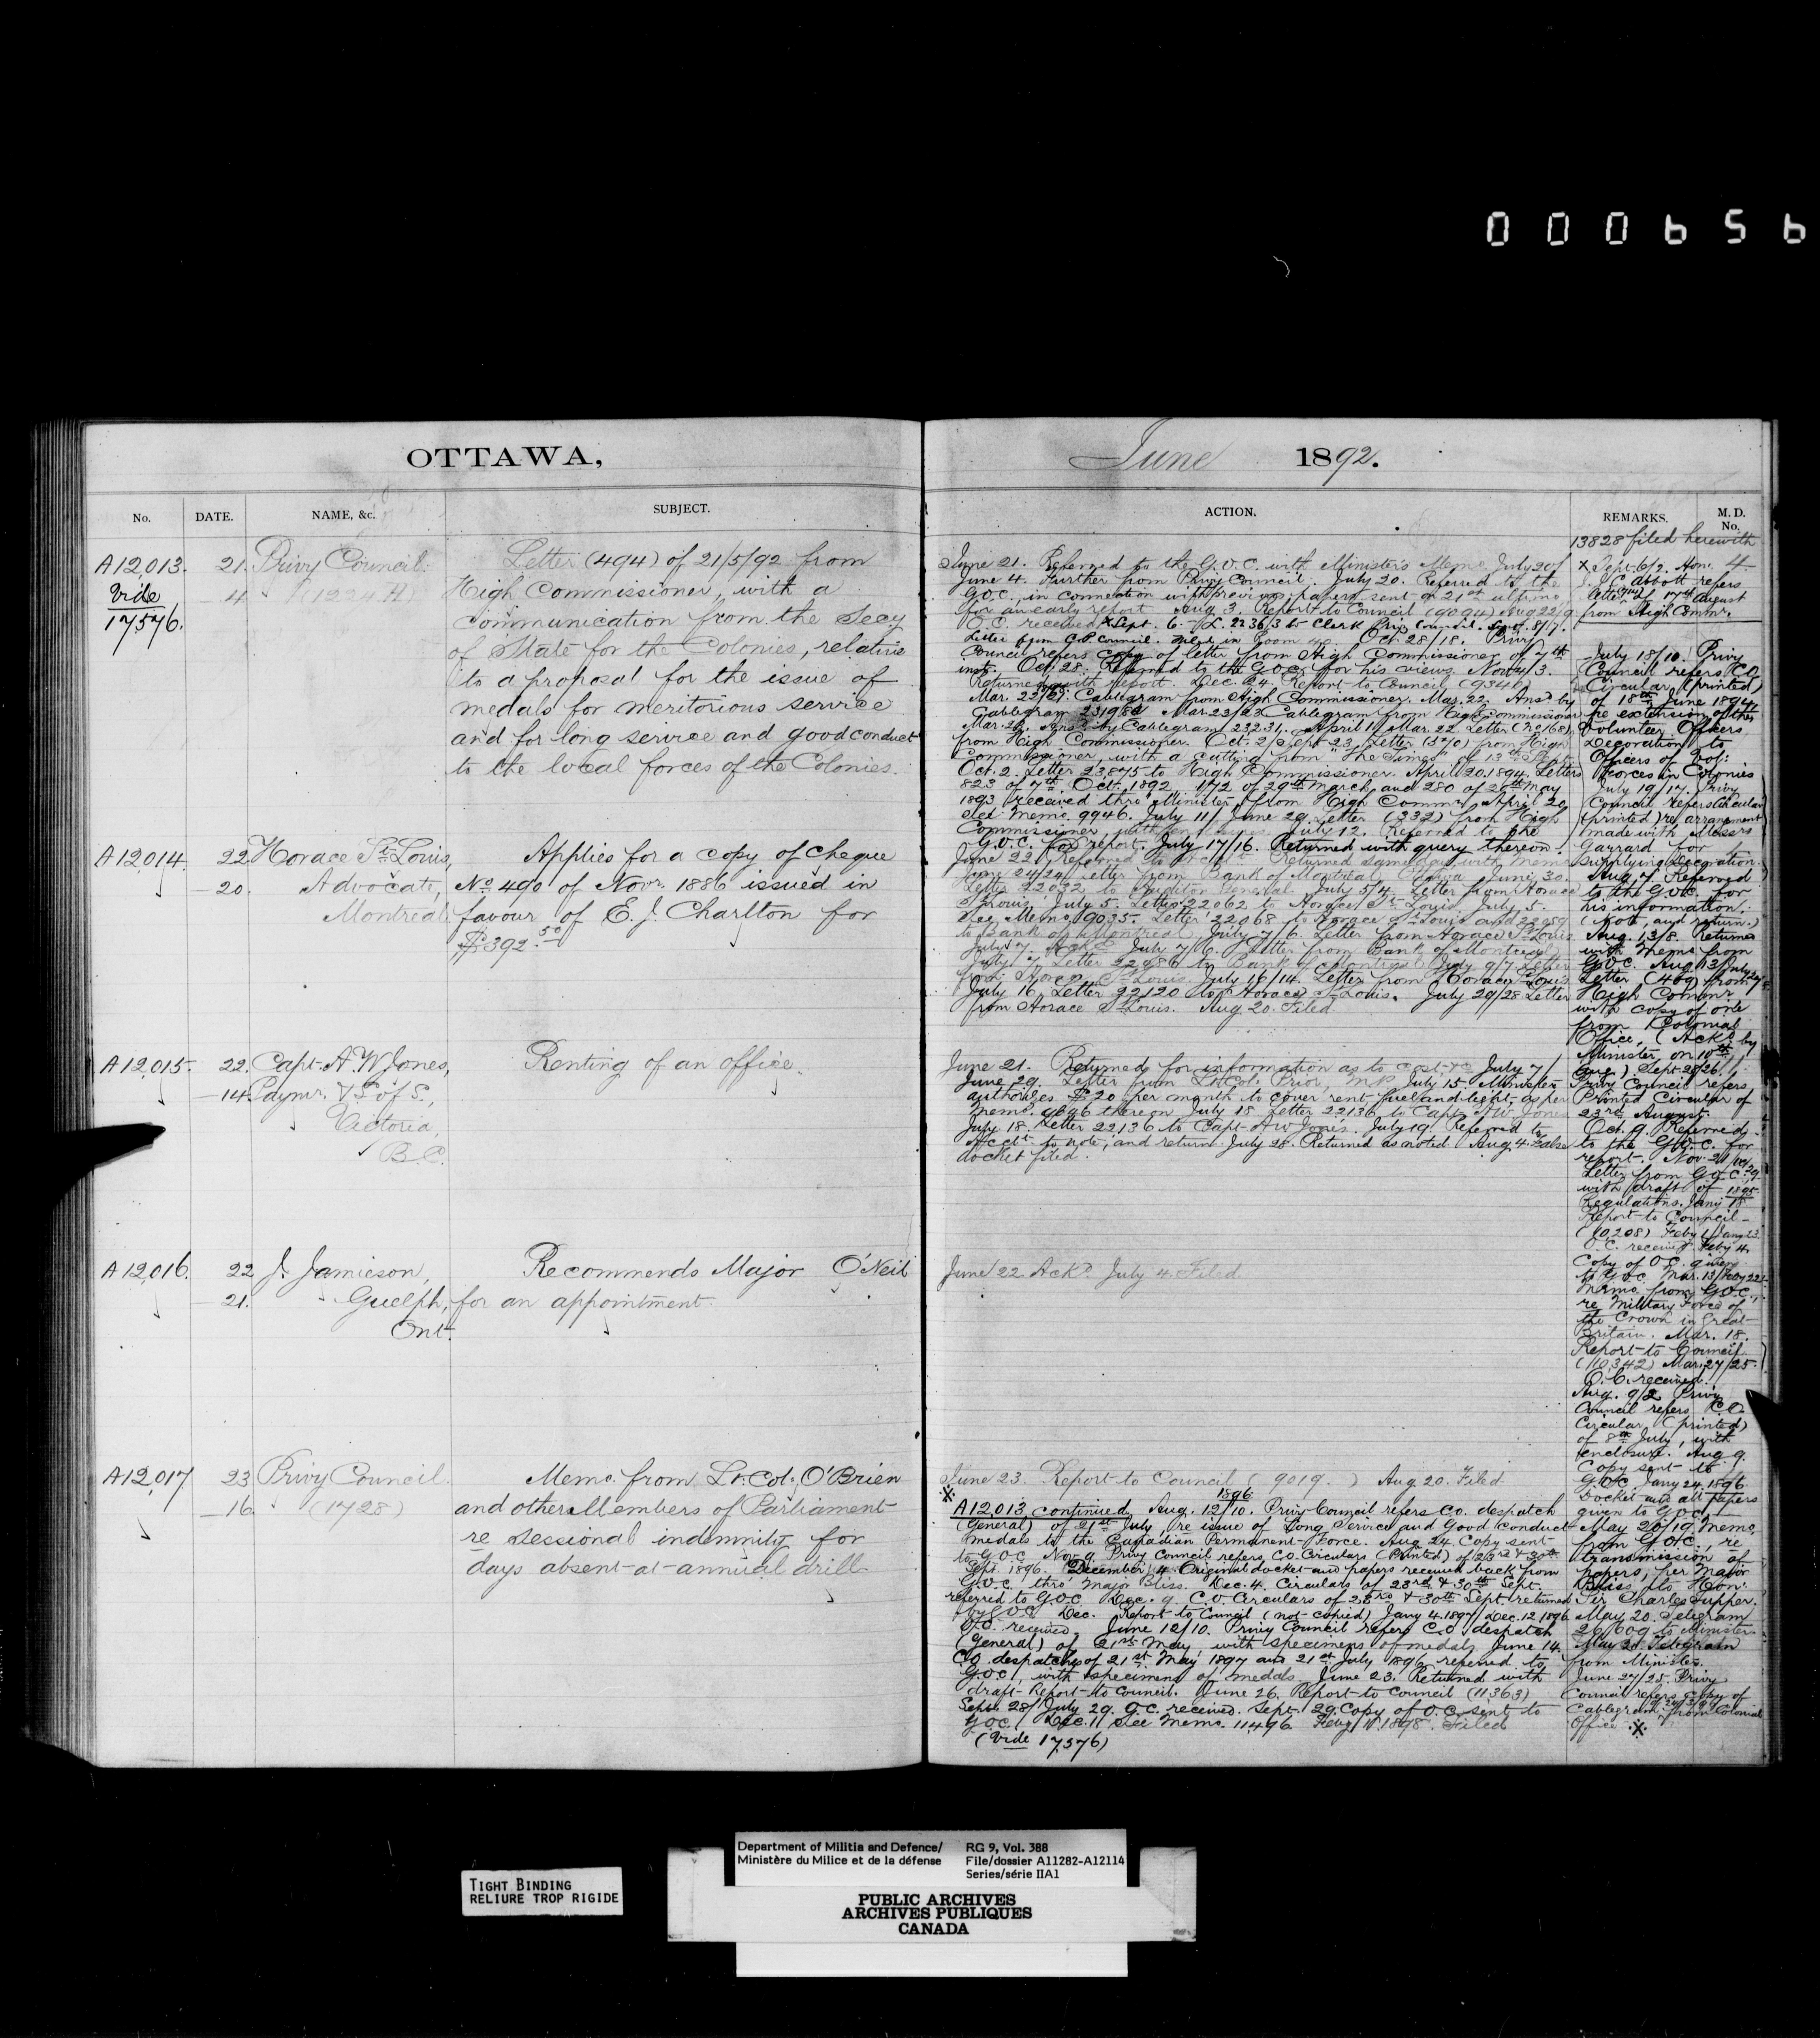 000656
OTTAWA,
June 1892.
No.
DATE.
NAME, &c.
SUBJECT.
ACTION.
REMARKS.
M. D.
No.
A12,013.
Vide
17576.
21.
— 4
Privy Council.
(1224 H)
Letter (494) of 21/5/92 from
High Commissioner, with a
communication from the Secy
of State for the Colonies, relative
to a proposal for the issue of
medals for meritorious service
and for long service and good conduct
to the local forces of the Colonies.
June 21. Referred to the G.O.C. with Minister's Memo. July 20/
June 4. Further from Privy Council. July 20. Referred to the
G.O.C., in connection with previous papers sent on 21st ultimo
for an early report. Aug 3. Report to Council (9094) Aug 22/9
O.C. received. X Sept. 6. L. 22636/3 to Clerk Priv. Council. Sept. 8/7.
Letter from C.P. Council. Filed in Room 40. Oct. 28/18. Privy
Council refers copy of letter from High Commissioner of 7th
inst. Oct. 28. Referred to the G.O.C. for his views. Nov. 4/3.
Returned with report. Dec. 24. Report to Council (9346)
Mar. 22. Cablegram from High Commissioner. Mar. 22. Ansd by
Cablegram 23198. Mar. 23/23 Cablegram from High Commissioner
Mar. 24. Ansd by Cablegram 23231. April 1/Mar. 22 Letter (No 168)
from High Commissioner. Oct. 2/Sept 23, Letter (570) from High
Commissioner, with a cutting from "The Times" of 13th Sept.
Oct. 2. Letter 23,875 to High Commissioner. April 20, 1894. Letters
823 of 7th Oct. 1892, 172 of 29th March, and 280 of 26th May
1893, received thro' Minister, from High Commr. April 20
See Memo. 9946. July 11/June 29. Letter (332) from High
Commissioner, with enclosures. July 12. Referred to the
G.O.C. for report. July 17/16. Returned with query thereon.
A12,014.
22
— 20.
Horace St. Louis,
Advocate,
Montreal.
Applies for a copy of cheque
No 490 of Novr. 1886 issued in
favour of E. J. Charlton for
$392.50
June 22. Referred to Acct. Returned same day with memo
June 24/24. Letter from Bank of Montreal, Ottawa. June 30.
Letter 22032 to Auditor General. July 5/4. Letter from Horace
St Louis. July 5. Letter 22062 to Horace St. Louis. July 5.
See Memo. 9035. Letter 22068 to Horace St. Louis and 22059
to Bank of Montreal. July 7/6. Letter from Horace St Louis.
July 7. Ackd. July 7/6. Letter from Bank of Montreal
July 7. Letter 22086 to Bank of Montreal. July 9/7. Letter
from Horace St Louis. July 16/14. Letter from Horace St Louis
July 16. Letter 22120 to Horace St Louis. July 29/28 Letter
from Horace St Louis. Aug. 20. Filed
A12,015.
22.
— 14.
Capt. A. W. Jones,
Paymr. & S. of S.,
Victoria,
B.C.
Renting of an office.
June 21. Returned for information as to cost &c. July 7/
June 29. Letter from Lt. Col. Prior, M.P. July 15. Minister
authorizes $20 per month to cover rent, fuel and light, as per
memo. 9696 thereon. July 18 Letter 22136 to Capt. A.W. Jones
July 18. Letter 22,136 to Capt. A.W. Jones. July 19. Referred to
Acctt to note, and return. July 26. Returned as noted. Aug 4. False
docket filed.
A12,016.
22
— 21.
J. Jamieson,
Guelph,
Ont.
Recommends Major O'Neil
for an appointment.
June 22 Ackd. July 4. Filed
A12,017
23
— 16.
Privy Council.
(1728)
Memo. from Lt. Col. O'Brien
and other Members of Parliament
re sessional indemnity for
days absent at annual drill
June 23. Report to Council (9019.) Aug 20. Filed
1896
A12,013 continued, Aug. 12/10. Privy Council refers C.O. despatch
(General) of 21st July, re issue of Long Service and Good Conduct
medals to the Canadian Permanent Force. Aug 24. Copy sent
to G.O.C. Nov. 9. Privy Council refers C.O. Circulars (Printed) of 23rd & 30th
Sept. 1896. December 4. Original docket and papers received back from
G.O.C. thro' Major Bliss. Dec. 4. Circulars of 23rd & 30th Sept.
referred to G.O.C. Dec. 9. C.O. Circulars of 23rd & 30th Sept. returned
by G.O.C. Dec. Report to Council (not copied) Jany 4. 1897/Dec. 12 1896
O.C. received. June 12/10. Privy Council refers C.O. despatch
(General) of 21st May, with specimens of medals. June 14.
C.O. despatches of 21st May 1897 and 21st July 1896 referred to
G.O.C., with specimens of medals. June 23. Returned with
draft Report to Council. June 26. Report to Council (11363)
Sept. 28/July 29. O.C. received. Sept. 29. Copy of O.C. sent to
G.O.C. Dec. 11 See Memo. 11,496. Feby 11 1898. Filed
(Vide 17,576)
13828 filed herewith
X Sept. 6/2. Hon. 4
J.J.C. Abbott refers
letter of 17th August
from High Commr.
July 18/10. Privy
Council refers C.O.
Circular (printed)
of 18th June 1894,
re extension of the
Volunteer Officers
Decoration to
Officers of Vol:
Forces in Colonies
July 19/17. Privy
Council refers Circular
(printed) re arrangement
made with Messrs
Garrard for
supplying Decoration.
Aug. 7. Referred
to the G.O.C. for
his information.
(Note, and return.)
Aug. 13/8. Returned
with memo from
G.O.C. Aug 13/July 27
Letter (469) from
High Commr.
with copy of one
from Colonial
Office, (Ackd by
Minister, on 10th
Aug.) Sept 29/26.
Privy Council refers
Printed Circular of
23rd August.
Oct. 9. Referred
to the G.O.C. for
report. Nov. 21/Oct 29
Letter from G.O.C.
with draft of
Regulations. 1895 Jany 18
Report to Council
(10208) Feby 1/Jany 23.
O.C. received. Feby 4.
Copy of O.C. given
to G.O.C. Mar. 13/Feby 22
Memo. from G.O.C.,
re Military Force of
the Crown in Great
Britain. Mar. 18.
Report to Council
(10,342) Mar. 27/25.
O.C. received.
Aug. 9/2 Privy
Council refers C.O.
Circular (printed)
of 8th July, with
enclosure. Aug. 9.
Copy sent to
G.O.C. Jany 24. 1896.
Docket and all papers
given to G.O.C.
May 20/19. Memo.
from G.O.C., re
transmission of
papers, per Major
Bliss, to Hon.
Sir Charles Tupper.
May 20. Telegram
26609 to Minister
May 20. Telegram
from Minister.
June 27/25. Privy
Council refers copy of
Cablegram from Colonial
Office
Department of Militia and Defence/
Ministère du Milice et de la défense
RG 9, Vol. 388
File/dossier A11282-A12114
Series/série IIA1
PUBLIC ARCHIVES
ARCHIVES PUBLIQUES
CANADA
TIGHT BINDING
RELIURE TROP RIGIDE